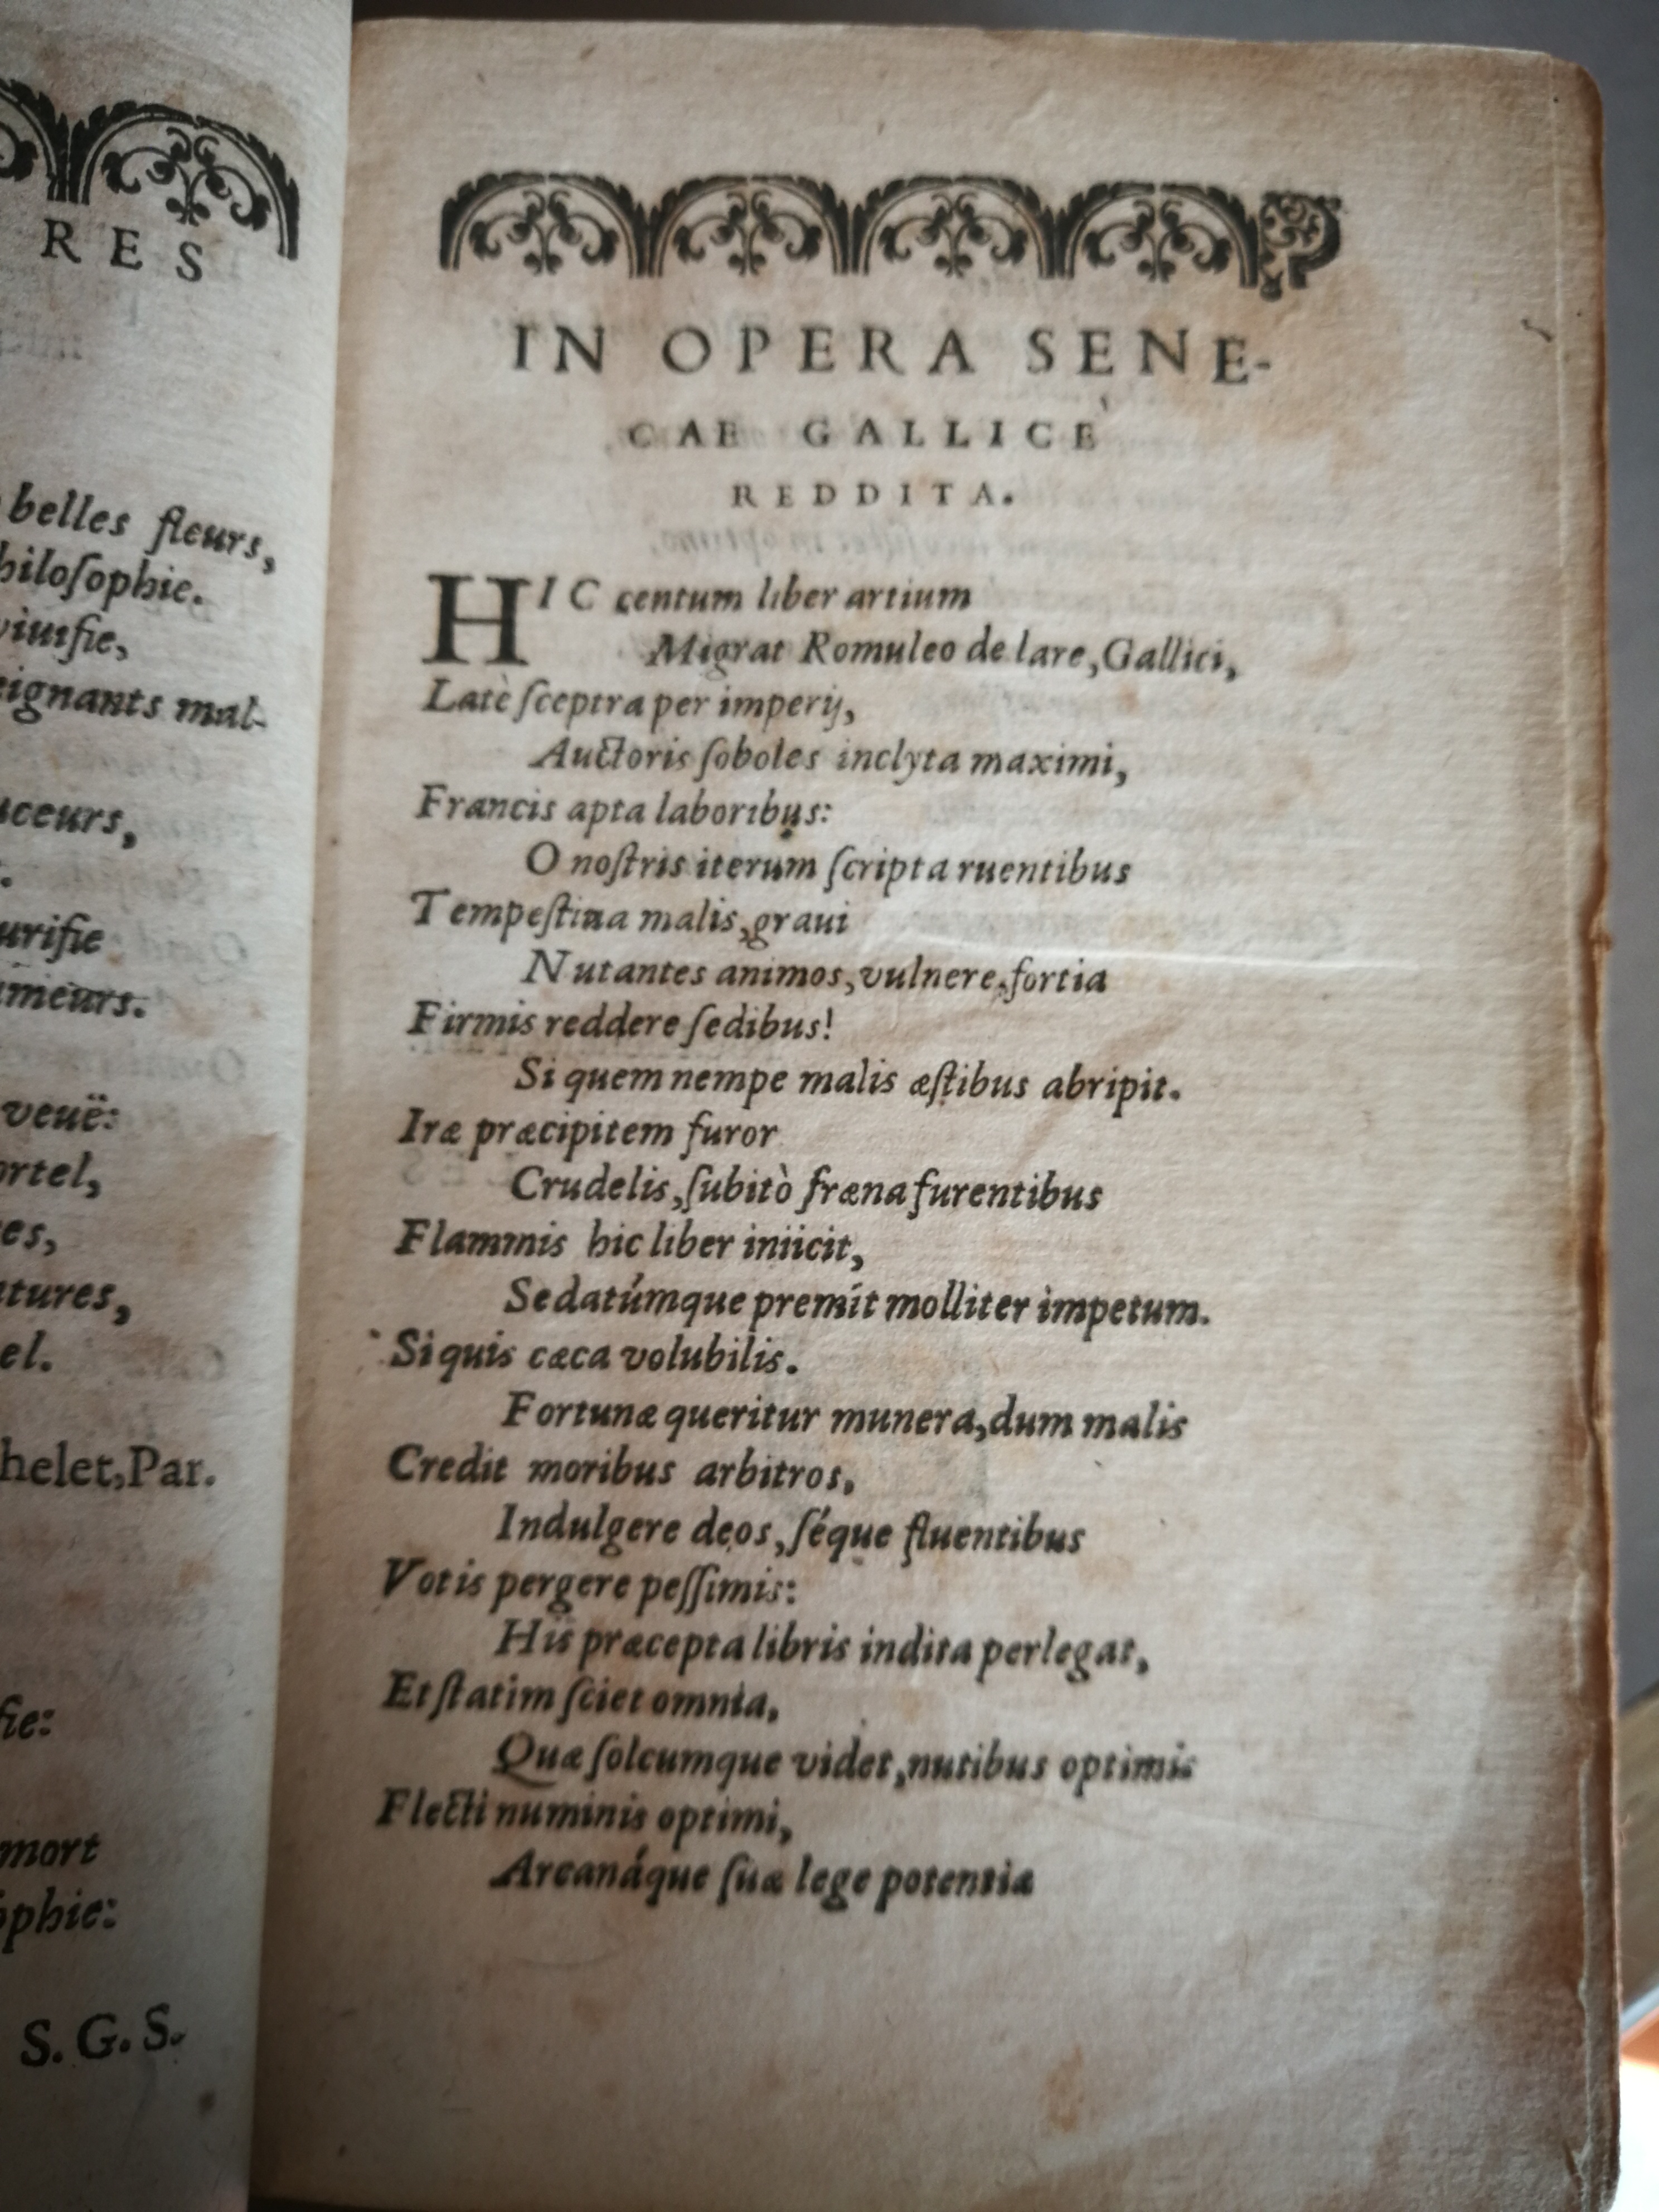 RES
belles fleurs,
hiloſophie.
viuifie,
eignants mal-
ceurs,
urifie
meurs.
veuë:
ortel,
es,
tures,
el.
helet, Par.
fie:
mort
ophie:
S. G. S.
IN OPERA SENE-
CAE GALLICÈ
REDDITA.
HIC centum liber artium
Migrat Romuleo de lare, Gallici,
Latè ſceptra per imperij,
Auctoris ſoboles inclyta maximi,
Francis apta laboribus:
O noſtris iterum ſcripta ruentibus
Tempeſtiua malis, graui
Nutantes animos, vulnere, fortia
Firmis reddere ſedibus!
Si quem nempe malis æſtibus abripit.
Iræ præcipitem furor
Crudelis, ſubitò fræna furentibus
Flammis hic liber iniicit,
Sedatúmque premit molliter impetum.
Si quis cæca volubilis.
Fortunæ queritur munera, dum malis
Credit moribus arbitros,
Indulgere deos, ſéque fluentibus
Votis pergere peſſimis:
His præcepta libris indita perlegat,
Et ſtatim ſciet omnia,
Quæ ſolcumque videt, nutibus optimis
Flecti numinis optimi,
Arcanáque ſuæ lege potentiæ